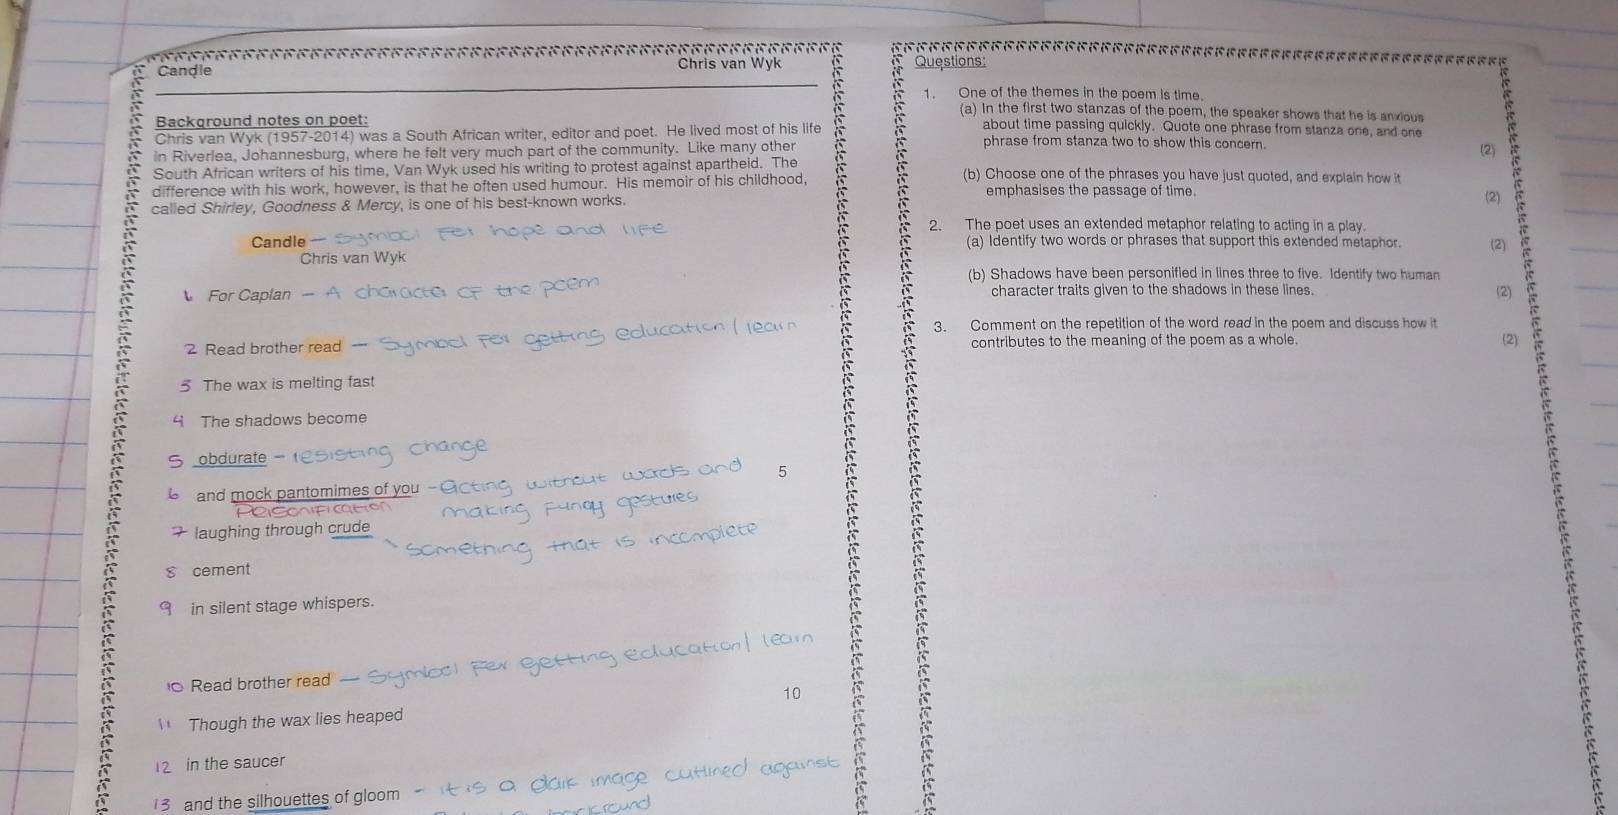 Candle Chris van Wyk
Background notes on poet:
Chris van Wyk (1957-2014) was a South African writer, editor and poet. He lived most of his life
in Riverlea, Johannesburg, where he felt very much part of the community. Like many other
South African writers of his time, Van Wyk used his writing to protest against apartheid. The
difference with his work, however, is that he often used humour. His memoir of his childhood,
called Shirley, Goodness & Mercy, is one of his best-known works.
Candle – symbol for hope and life
Chris van Wyk
1 For Caplan – A character of the poem
2 Read brother read – Symbol for getting education / learn
3 The wax is melting fast
4 The shadows become
5 obdurate – resisting change
6 and mock pantomimes of you – acting without words and 5
Personification making funny gestures
7 laughing through crude
something that is incomplete
8 cement
9 in silent stage whispers.
10 Read brother read – Symbol for getting education / learn
10
11 Though the wax lies heaped
12 in the saucer
13 and the silhouettes of gloom – it is a dark image outlined against
Questions:
1. One of the themes in the poem is time.
(a) In the first two stanzas of the poem, the speaker shows that he is anxious
about time passing quickly. Quote one phrase from stanza one, and one
phrase from stanza two to show this concern. (2)
(b) Choose one of the phrases you have just quoted, and explain how it
emphasises the passage of time. (2)
2. The poet uses an extended metaphor relating to acting in a play.
(a) Identify two words or phrases that support this extended metaphor. (2)
(b) Shadows have been personified in lines three to five. Identify two human
character traits given to the shadows in these lines. (2)
3. Comment on the repetition of the word read in the poem and discuss how it
contributes to the meaning of the poem as a whole. (2)